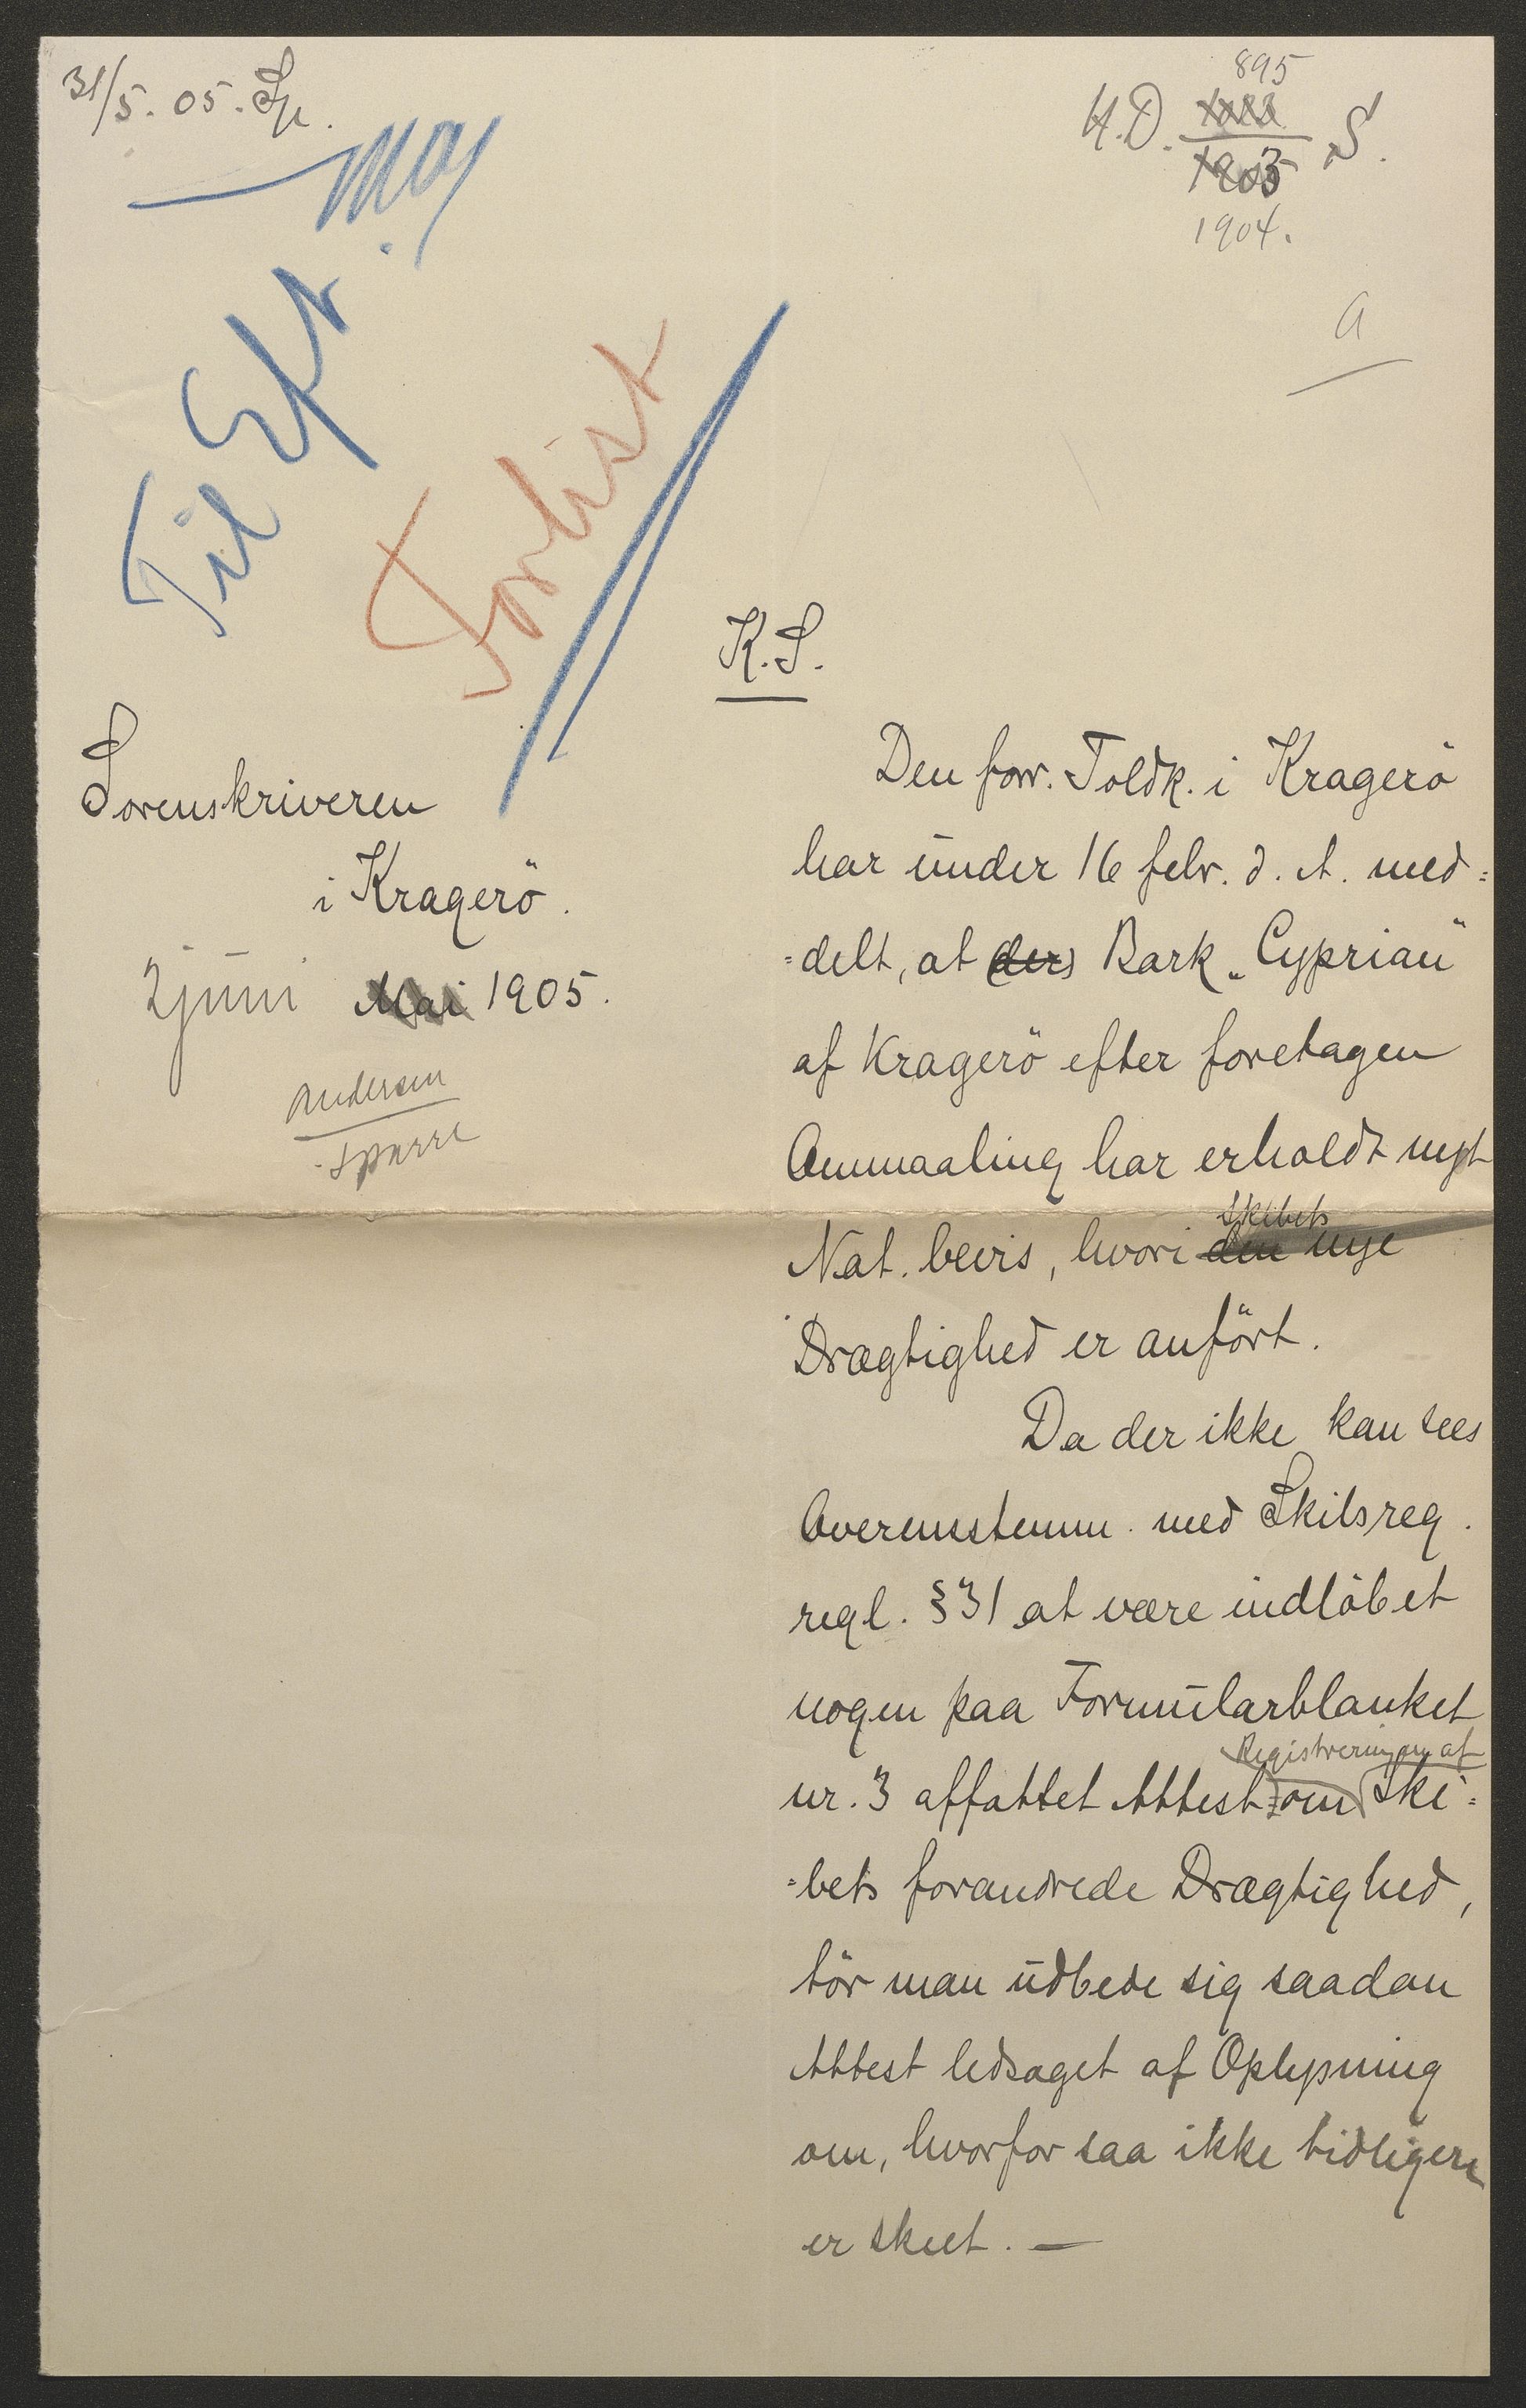 31/5. 05. Sp.
895
H.D. S.
1903
1904.
a
Til Exp.
Forlist
K.S.
Sorenskriveren
i Kragerö.
2 juni Mai 1905.
Andersen
Sparre
Den forr. Toldk. i Kragerö
har under 16 febr. d. A. med=
=delt, at ders Bark "Cyprian"
af Kragerö efter foretagen
Ommaaling har erholdt nyt
skibets
Nat. bevis, hvori den nye
Drægtighed er anfört.
Da der ikke kan sees
Overensstemm. med Skibsreg.
regl. §31 at være indlöbet
nogen paa Formularblanket
Registreringen af
nr. 3 affattet Attest om Ski=
=bets forandrede Drægtighed,
tör man udbede sig saadan
Attest ledsaget af Oplysning
om, hvorfor saa ikke tidligere
er skeet. —